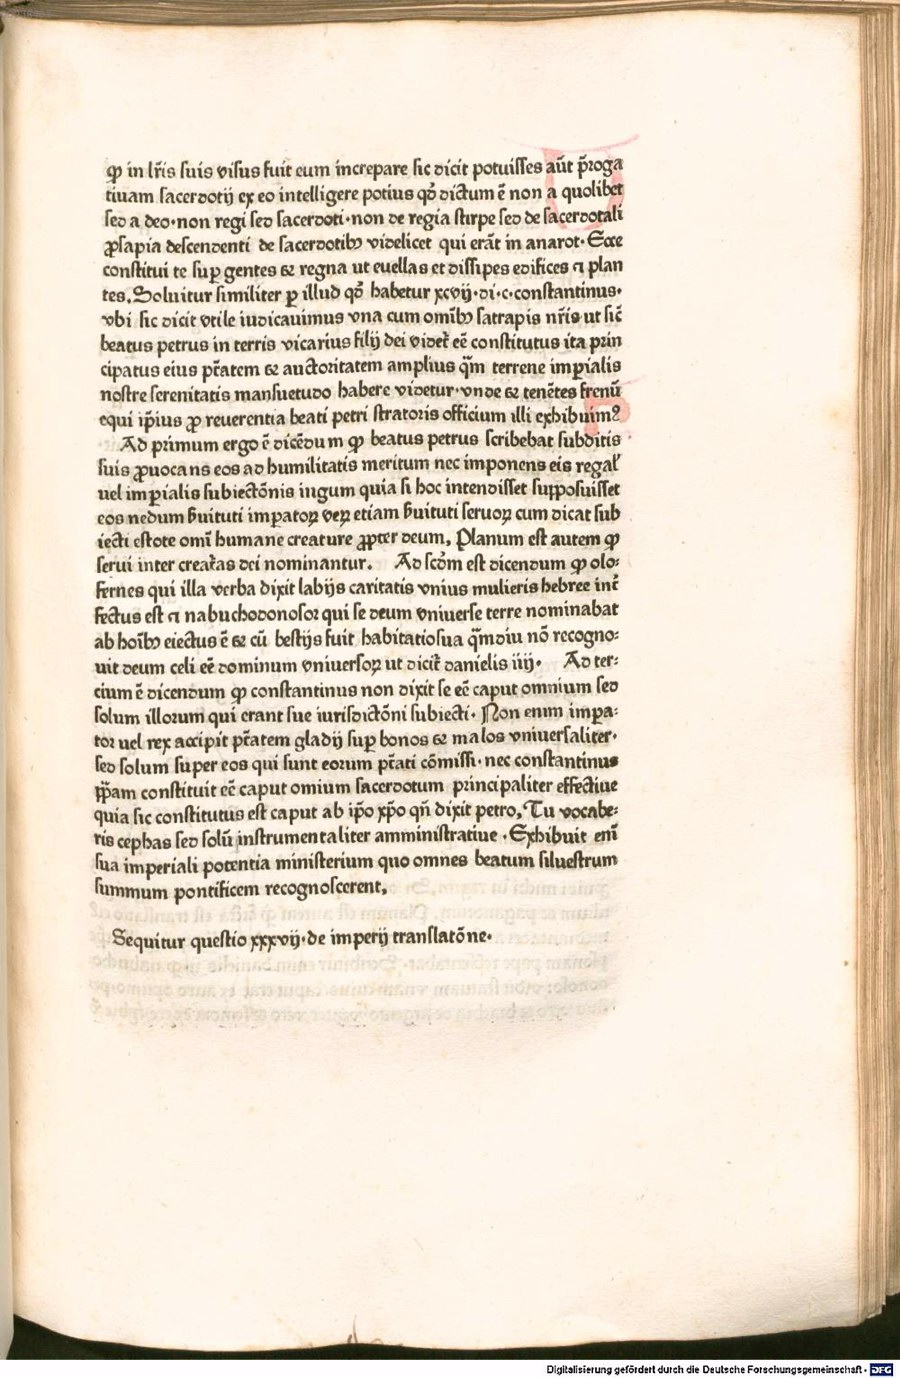 ꝙ in lr̄is suis visus fuit eum increpare sic dicit potuisses aūt p̄roga
tiuam sacerdotij ex eo intelligere potius qđ dictum ē non a quolibet
sed a deo·non regi sed sacerdoti·non de regia stirpe sed de sacerdotali
ꝓsapia descendenti de sacerdotibꝫ videlicet qui erāt in anarot·Ecce
constitui te suꝑ gentes ⁊ regna ut euellas et dissipes edifices ⁊ plan
tes, Soluitur similiter ꝑ illud qđ habetur xcvij·di·c·constantinus·
vbi sic dicit vtile iudicauimus vna cum omībꝫ satrapis nr̄is ut sic̄
beatus petrus in terris vicarius filij dei videt̄ eē constitutus ita prin
cipatus eius pt̄atem ⁊ auctoritatem amplius qm̄ terrene imꝑialis
nostre serenitatis mansuetudo habere videtur·vnde ⁊ tenētes frenū
equi ip̄ius ꝓ reuerentia beati petri stratoris officium illi exhibuimꝰ
Ad primum ergo ē dicēdu m ꝙ beatus petrus scribebat subditis
suis ꝓuoca ns eos ad humilitatis meritum nec imponens eis regal̄
uel imꝑialis subiectōnis iugum quia si hoc intendisset supposuisset
eos nedum s̄uituti imꝑatoꝝ veꝝ etiam s̄uituti seruoꝝ cum dicat sub
iecti estote omī humane creature ꝓpter deum, Planum est autem ꝙ
serui inter creat̄as dei nominantur. Ad scd̄m est dicendum ꝙ olo:
fernes qui illa verba dixit labijs caritatis vnius mulieris hebree int̄
fectus est ⁊ nabuchodonosor qui se deum vniuerse terre nominabat
ab hoībꝫ eiectus ē ⁊ cū bestijs fuit habitatiosua qm̄diu nō recogno:
uit deum celi eē dominum vniuersoꝝ ut dicit̄ danielis iiij· Ad ter:
cium ē dicendum ꝙ constantinus non dixit se eē caput omnium sed
solum illorum qui erant sue iurisdictōni subiecti· Non enim imꝑa:
tor uel rex accipit pt̄atem gladij suꝑ bonos ⁊ malos vniuersaliter·
sed solum super eos qui sunt eorum pt̄ati cōmissi·nec constantinus
pp̄am constituit eē caput omium sacerdotum principaliter effectiue
quia sic constitutus est caput ab ip̄o xp̄o qn̄ dixit petro, Tu vocabe:
ris cephas sed solū instrumentaliter amministratiue ·Exhibuit enī
sua imperiali potentia ministerium quo omnes beatum siluestrum
summum pontificem recognoscerent,
Sequitur questio xxxvij·de imperij translatōne·
Digitalisierung gefördert durch die Deutsche Forschungsgemeinschaft - DFG